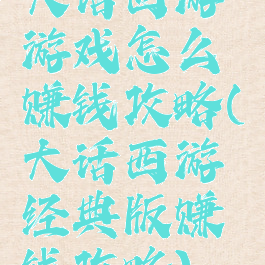 大话西游
游戏怎么
赚钱攻略(
大话西游
经典版赚
钱攻略)